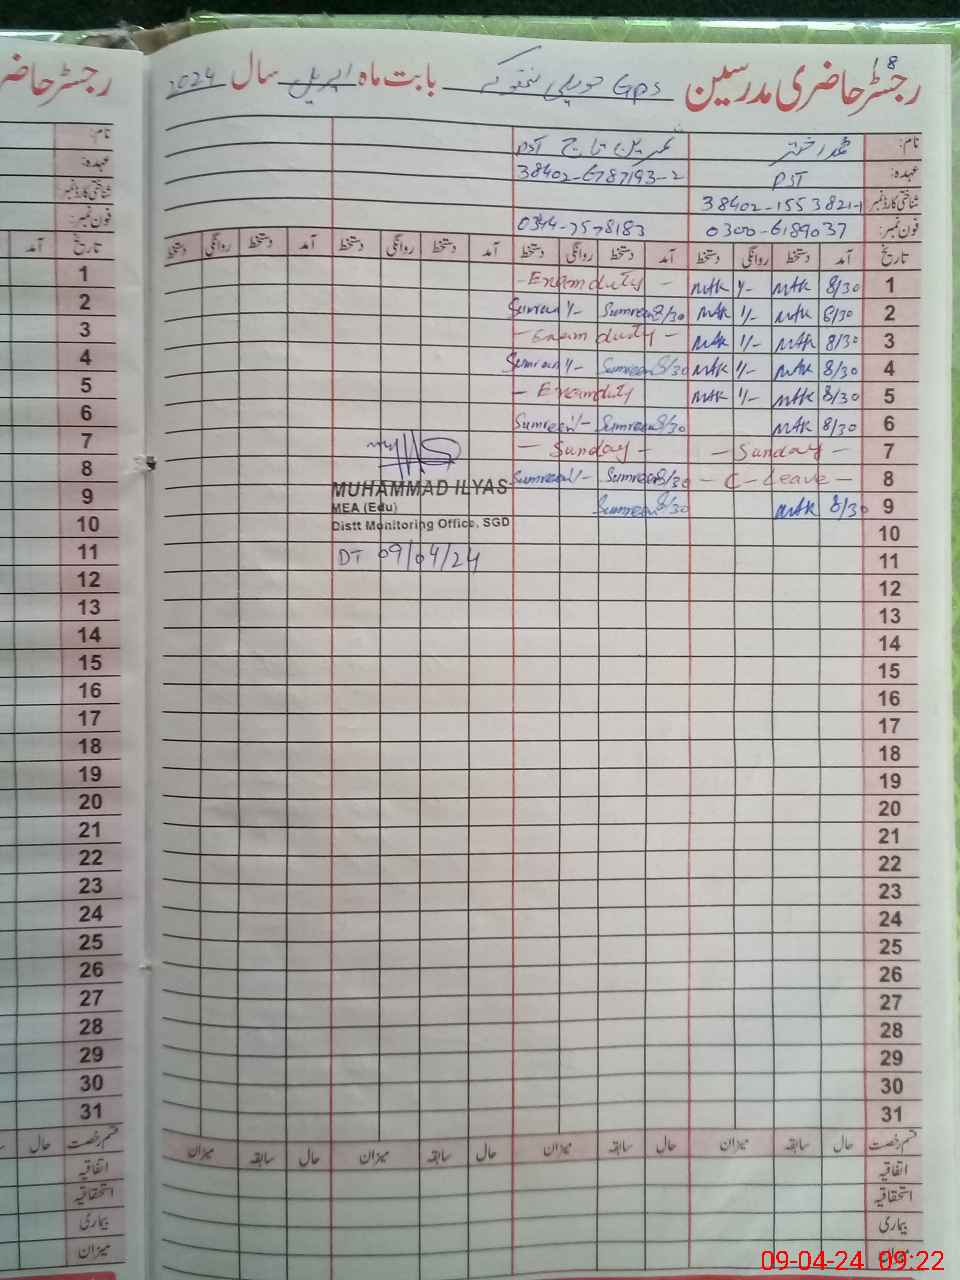 رجسٹر حاضر
رجسٹر حاضری مدرسین 18 Gps حویلی بابت ماہ اپریل سال 2024
نام: نام:
عہدہ: PST عہدہ: PST
شناختی کارڈ نمبر 38402-1553821-1 38402-6787193-2 شناختی کارڈ نمبر
فون نمبر: 0300-6189037 0344-7578183 فون نمبر:
تاریخ آمد دستخط روانگی دستخط آمد دستخط روانگی دستخط آمد دستخط روانگی دستخط آمد دستخط روانگی دستخط تاریخ آمد
1 8/30 MAK 1/- MAK - Exam duty - 1
2 8/30 MAK 1/- MAK 8/30 Sumreen 1/- Sumreen 2
3 8/30 MAK 1/- MAK - Exam duty - 3
4 8/30 MAK 1/- MAK 8/30 Sumreen 1/- Sumreen 4
5 8/30 MAK 1/- MAK - Exam duty 5
6 8/30 MAK 8/30 Sumreen 1/- Sumreen 6
7 - Sunday - - Sunday - 7
8 - C - Leave - 8/30 Sumreen 1/- Sumreen 8
9 8/30 MAK 8/30 Sumreen 9
MUHAMMAD ILYAS
MEA (Edu)
Distt Monitoring Office, SGD
DT 09/04/24
10 10
11 11
12 12
13 13
14 14
15 15
16 16
17 17
18 18
19 19
20 20
21 21
22 22
23 23
24 24
25 25
26 26
27 27
28 28
29 29
30 30
31 31
قسم رخصت حال سابقہ میزان حال سابقہ میزان حال سابقہ میزان حال سابقہ میزان قسم رخصت حال
اتفاقیہ اتفاقیہ
استحقاقیہ استحقاقیہ
بیماری بیماری
میزان میزان
09-04-24 09:22